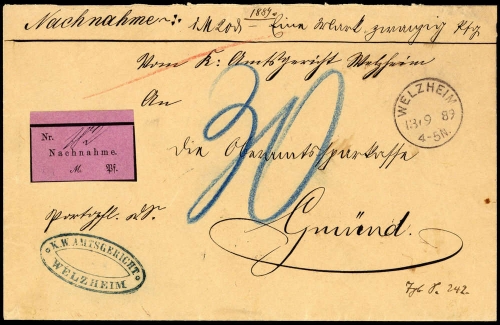 Nachnahme: 1 M 20 d — Eine Mark zwanzig Pfg
1889.
Vom K. Amtsgericht Welzheim
An
WELZHEIM
13 9 89
4-5N.
Nr.
Nachnahme.
M. Pf.
30
die Oberamtssparkasse
Portopfl. D.S.
Gmünd.
K.W.AMTSGERICHT
WELZHEIM
242.